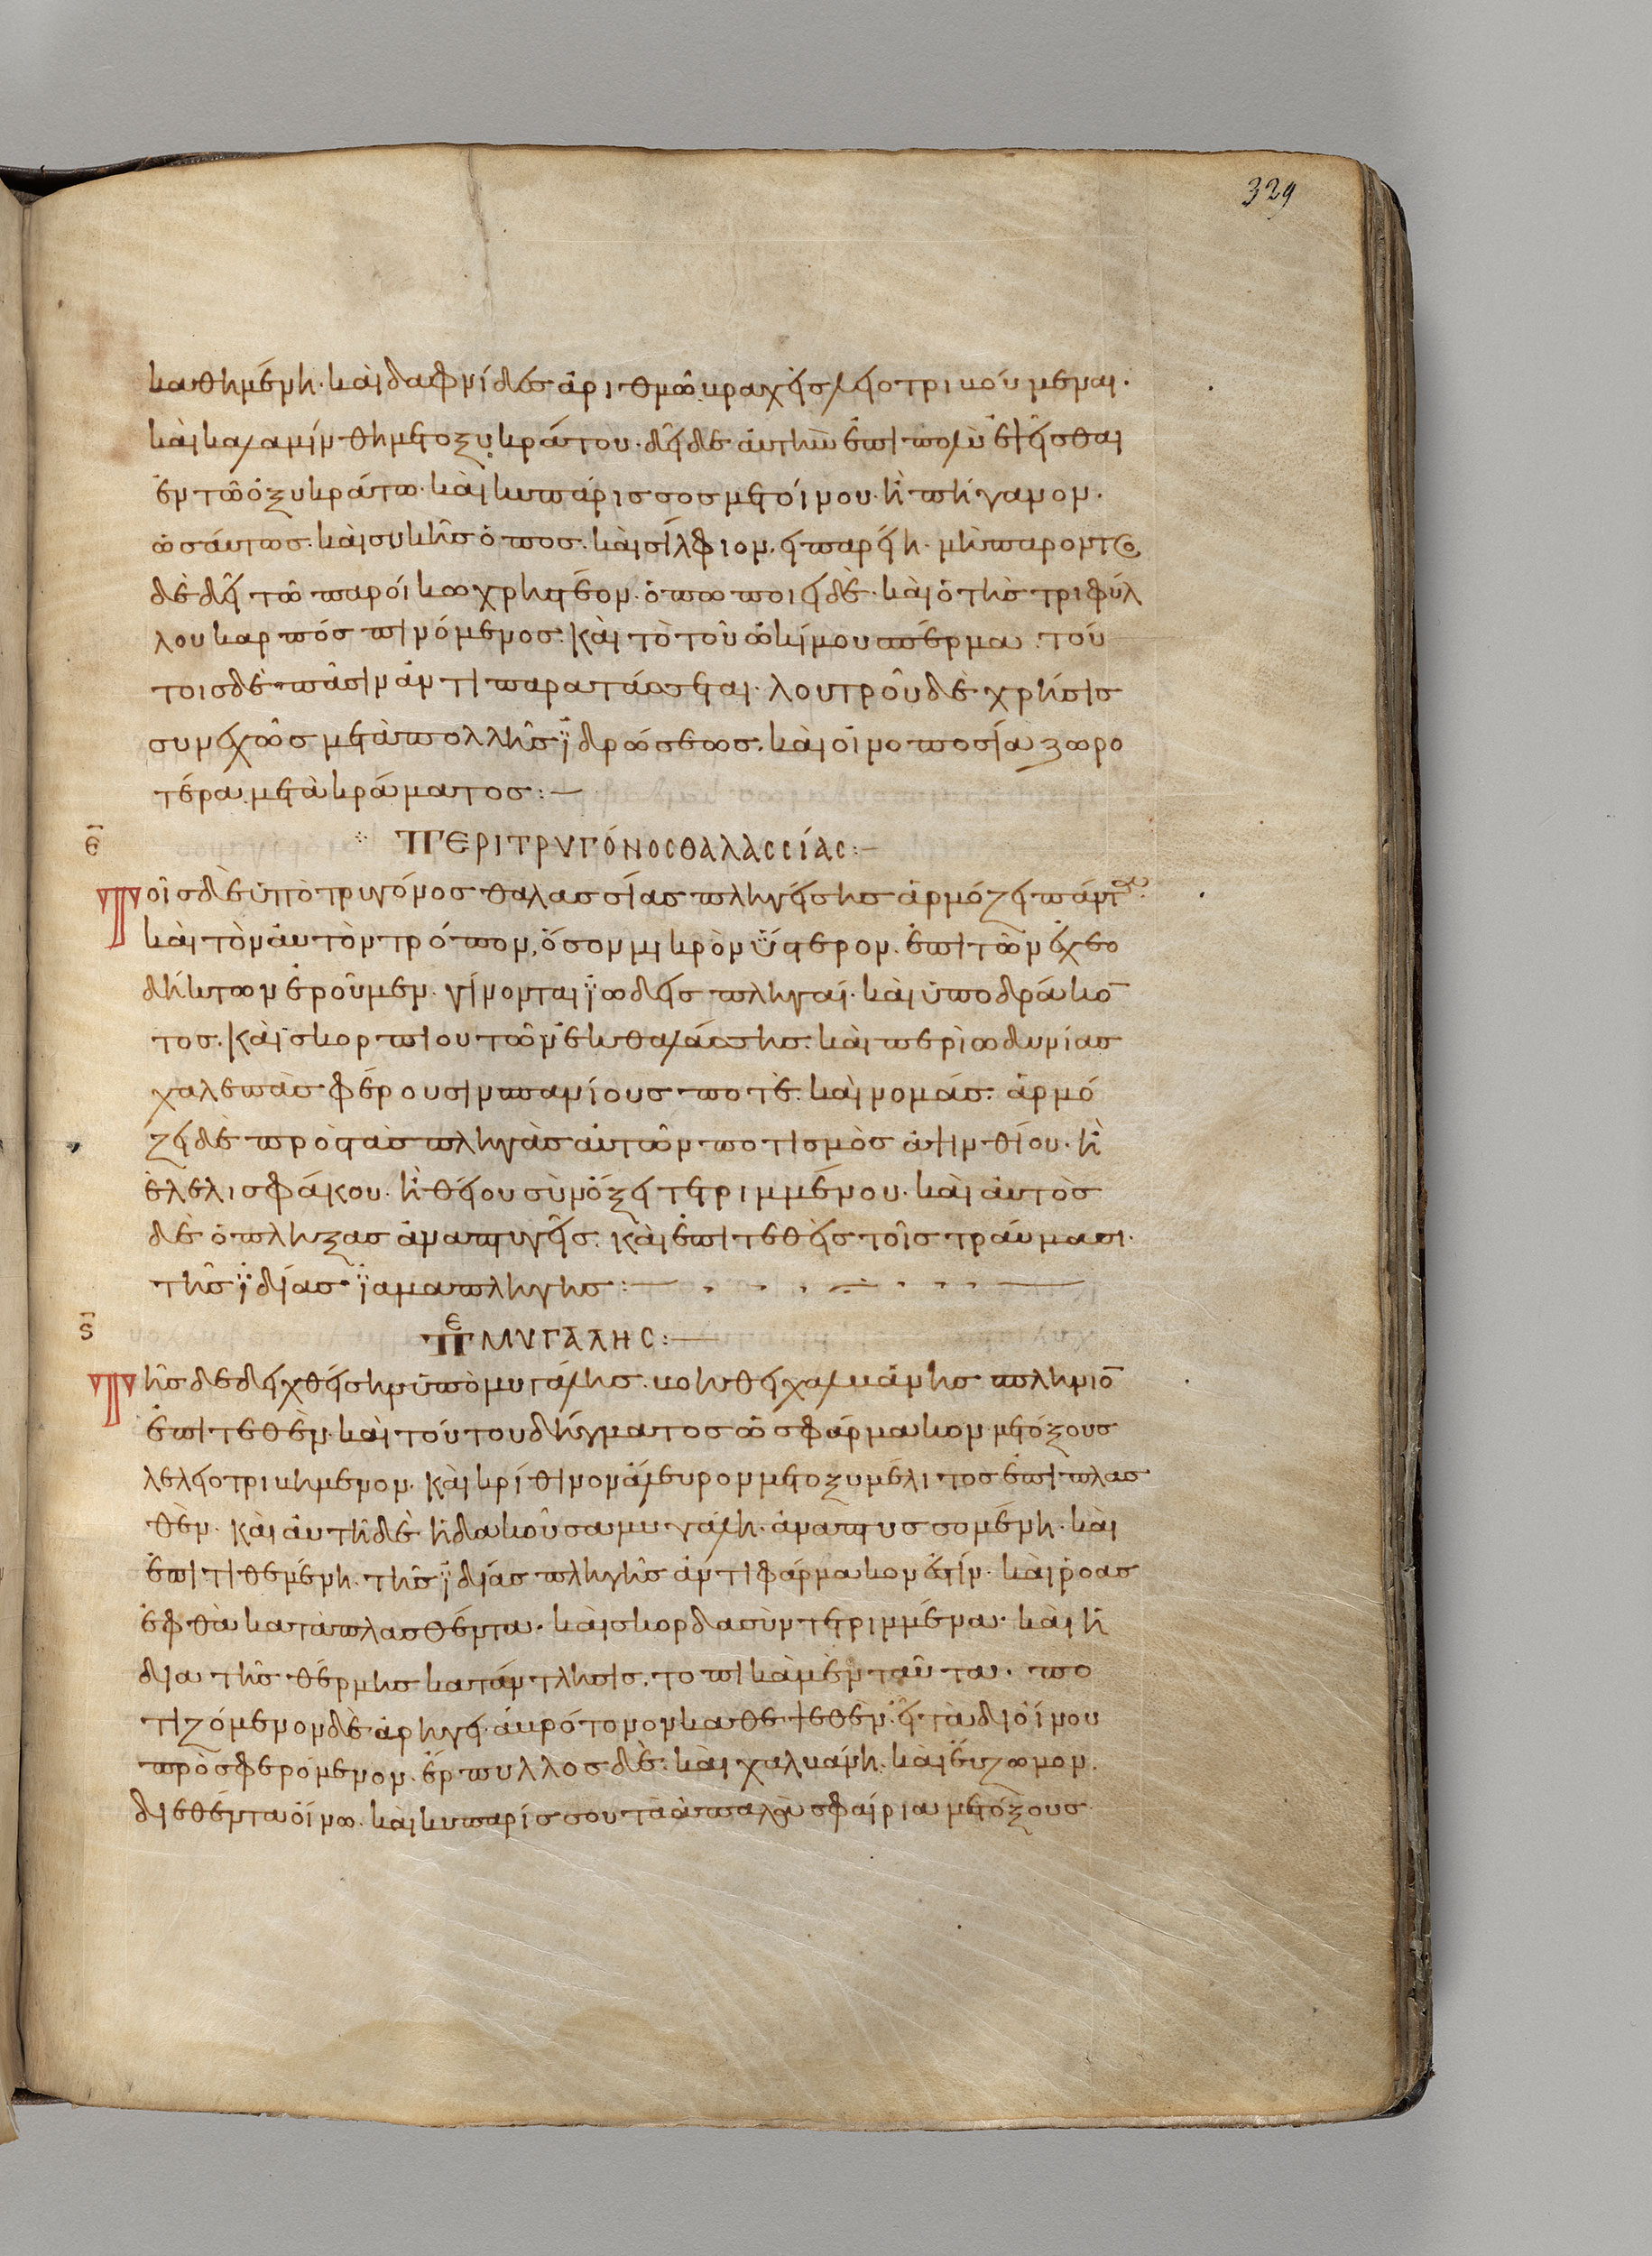 329
καθημένη· καὶ δαφνίδες ἀριθμῶ βραχεῖς λειοτριβούμεναι·
καὶ καλαμίνθη μετ οξυκράτου· δεῖ δὲ ἀυτὴν ἐπιπολὺ ἑψεῖσθαι
ἐν τῶ ὀξυκράτω· καὶ κυπάρισσος μετ οἴνου· ἢ πήγανον·
ὡσάυτως· καὶ συκῆς ὀπος· καὶ σίλφιον, εἰ παρείη· μὴ παροντος
δὲ δεῖ τῶ παροίκω χρηστέον· ὀπω ποιεῖ δὲ· καὶ ὁ τῆς τριφύλ
λου καρπός πινόμενος· καὶ τὸ τοῦ ὠκίμου σπέρμα· τού
τοις δὲ πᾶσιν ἀντιπαρατάσσεται· λουτροῦ δὲ χρῆσις
συνεχῶς μετὰ πολλῆς ϊδρώσεως· καὶ οἰνοποσία ζωρο
τέρα μετὰ κράματος:—
ε̄
ΠΕΡΙ ΤΡΥΓΌΝΟΣ ΘΑΛΑΣΣΊΑΣ:—
Τοῖς δὲ ὑπὸ τρυγόνος θαλασσίας πληγείσης ἁρμόζει πάντα·
καὶ τὸν ἀυτὸν τρόπον, ὅσον μικρὸν ϋστερον· ἐπὶ τῶν ἐχεο
δήκτων ἐροῦμεν· γίνονται ϊωδεις πληγαί· καὶ ὑπο δράκο̄
τος· καὶ σκορπίου τῶν ἐκ θαλάσσης· καὶ περιωδυνίας
χαλεπὰς φέρουσιν σπανίους ποτὲ· καὶ νομάς· ἁρμό
ζει δὲ πρὸς τὰς πληγὰς ἀυτῶν ποτισμὸς ἀψινθίου· ἢ
ἐλελισφάκου· ἢ θείου σὺν ὄξει τετριμμένου· καὶ ἀυτὸς
δὲ ὁ πληξας ἀναπτυγεῖς· καὶ ἐπιτεθεὶς τοῖς τράυμασι·
τῆς ϊδίας ϊαμα πληγης:—
ϛ̄
ΠΕ ΜΥΓΑΛΗΣ:—
Τῆς δε δειχθείσης ὑπὸ μυγάλης· βοηθεῖ χαλβάνης πλήνιο̄
ἐπιτεθὲν· καὶ τούτου δήγματος ὡς φάρμακον μετ όξους
λελειοτριβημενον· καὶ κρίθινον ἄλευρον μετ οξυμέλιτος ἐπιπλας
θὲν· καὶ ἀυτὴ δὲ ἡ δακοῦσα μυγάλη· ἀναπτυσσομένη· καὶ
ἐπιτιθεμένη· τῆς ϊδίας πληγῆς ἀντιφάρμακον ἐστίν· καὶ ῥοας
ἑφθὰ καταπλασθέντα· καὶ σκορδα σὺν τετριμμένα· καὶ ἡ
δια τῆς θέρμης κατάντλησις· τοπικὰ μὲν ταῦτα· πο
τιζόμενον δὲ ἀρήγει· ἀβρότονον καθεψεθὲν· εἶτὰ δι οἴνου
πρὸσφερόμενον· ἕρπυλλος δὲ· καὶ χαλβάνη· καὶ ἔυζωμον·
διεθέντα οἴνω· καὶ κυπαρίσσου τὰ ἁπαλὰ σφαίρια μετ όξους